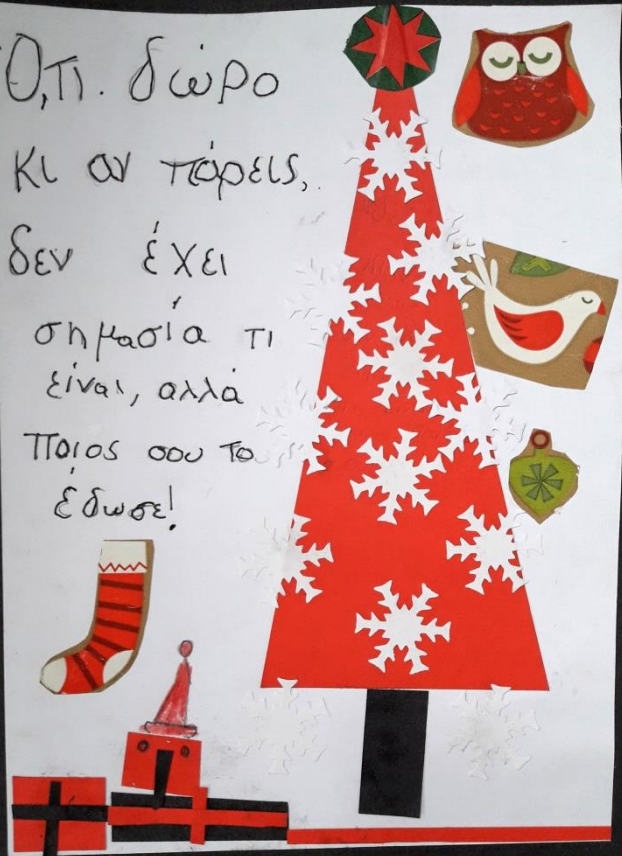 Ό,τι. δώρο
κι αν πάρεις,
δεν έχει
σημασία τι
είναι, αλλά
ποιος σου το
έδωσε!